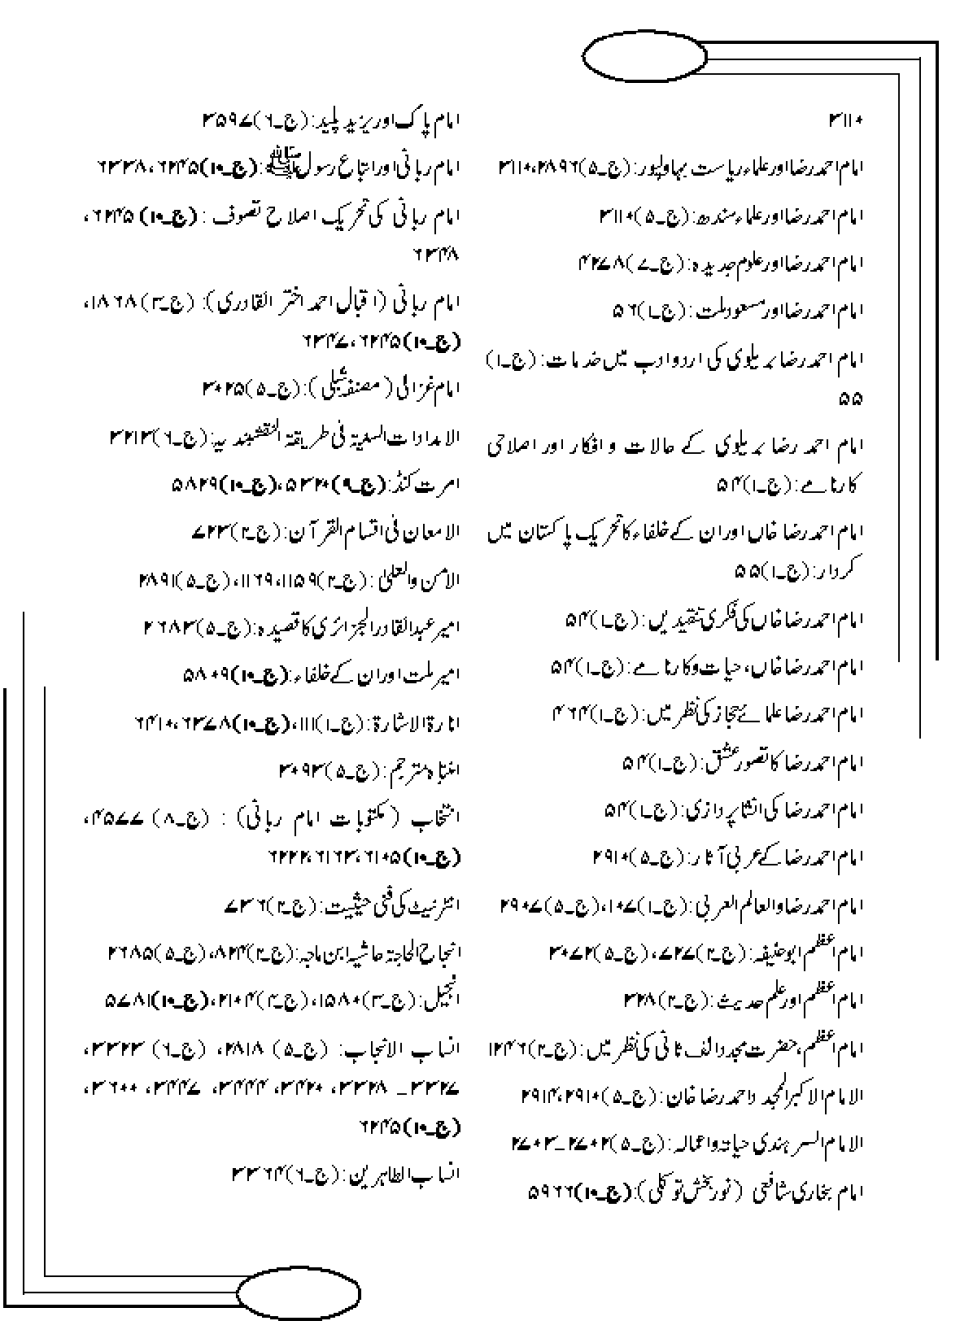 ۳۱۱۰
امام احمد رضا اور علماء ریاست بہاولپور: (ج۔۵)۲۸۹۶، ۳۱۱۰
امام احمد رضا اور علماء سندھ: (ج۔۵)۳۱۱۰
امام احمد رضا اور علوم جدیدہ: (ج۔۷)۴۲۷۸
امام احمد رضا اور مسعود ملت: (ج۔۱)۵۶
امام احمد رضا بریلوی کی اردو ادب میں خدمات: (ج۔۱)
۵۵
امام احمد رضا بریلوی کے حالات و افکار اور اصلاحی
کارنامے: (ج۔۱)۵۴
امام احمد رضا خاں اور ان کے خلفاء کا تحریک پاکستان میں
کردار: (ج۔۱)۵۵
امام احمد رضا خاں کی فکری تنقیدیں: (ج۔۱)۵۴
امام احمد رضا خاں، حیات و کارنامے: (ج۔۱)۵۴
امام احمد رضا علمائے حجاز کی نظر میں: (ج۔۱)۴۶۴
امام احمد رضا کا تصور عشق: (ج۔۱)۵۴
امام احمد رضا کی انشا پردازی: (ج۔۱)۵۴
امام احمد رضا کے عربی آثار: (ج۔۵)۲۹۱۰
امام احمد رضا والعالم العربی: (ج۔۱)۱۰۷، (ج۔۵)۲۹۰۷
امام اعظم ابوحنیفہ: (ج۔۲)۷۲۷، (ج۔۵)۳۰۷۲
امام اعظم اور علم حدیث: (ج۔۲)۳۲۸
امام اعظم، حضرت مجدد الف ثانی کی نظر میں: (ج۔۲)۱۲۴۶
الامام الاکبر المجدد احمد رضا خان: (ج۔۵)۲۹۱۰، ۲۹۱۴
الامام السرہندی حیاتہ واعمالہ: (ج۔۵)۲۷۰۲۔۲۷۰۳
امام بخاری شافعی (نور بخش توکلی): (ج۔۱۰)۵۹۶۶
امام پاک اور یزید پلید: (ج۔۶)۳۵۹۷
امام ربانی اور اتباع رسول ﷺ: (ج۔۱۰)۶۲۴۵، ۶۳۳۸
امام ربانی کی تحریک اصلاح تصوف: (ج۔۱۰)۶۲۴۵،
۶۳۴۸
امام ربانی (اقبال احمد اختر القادری): (ج۔۳)۱۸۶۸،
(ج۔۱۰)۶۲۴۵، ۶۳۴۷
امام غزالی (مصنفہ شبلی): (ج۔۵)۳۰۲۵
الامدادات السعدیۃ فی طریقۃ النقشبندیہ: (ج۔۶)۳۲۱۳
امرت کنڈ: (ج۔۹)۵۳۲۰، (ج۔۱۰)۵۸۲۹
الامعان فی اقسام القرآن: (ج۔۲)۷۲۳
الامن والعلیٰ: (ج۔۲)۱۱۵۹، ۱۱۶۹، (ج۔۵)۲۸۹۱
امیر عبدالقادر الجزائری کا قصیدہ: (ج۔۵)۲۶۸۳
امیر ملت اور ان کے خلفاء: (ج۔۱۰)۵۸۰۹
انارۃ الاشارۃ: (ج۔۱)۱۱۱، (ج۔۱۰)۶۳۷۸، ۶۴۱۰
انتباہ مترجم: (ج۔۵)۳۰۹۳
انتخاب (مکتوبات امام ربانی): (ج۔۸)۴۵۷۷،
(ج۔۱۰)۶۱۰۵، ۶۱۶۳، ۶۲۲۲
انٹرنیٹ کی فنی حیثیت: (ج۔۲)۷۳۶
انجاح الحاجۃ حاشیہ ابن ماجہ: (ج۔۲)۸۲۴، (ج۔۵)۲۶۸۵
انجیل: (ج۔۳)۱۵۸۰، (ج۔۴)۲۱۰۴، (ج۔۱۰)۵۷۸۱
انساب الانجاب: (ج۔۵)۲۸۱۸، (ج۔۶)۳۳۲۳،
۳۳۲۷۔ ۳۳۲۸، ۳۴۲۰، ۳۴۴۴، ۳۴۴۷، ۳۶۰۰،
(ج۔۱۰)۶۲۴۵
انساب الطاہرین: (ج۔۶)۳۳۶۴